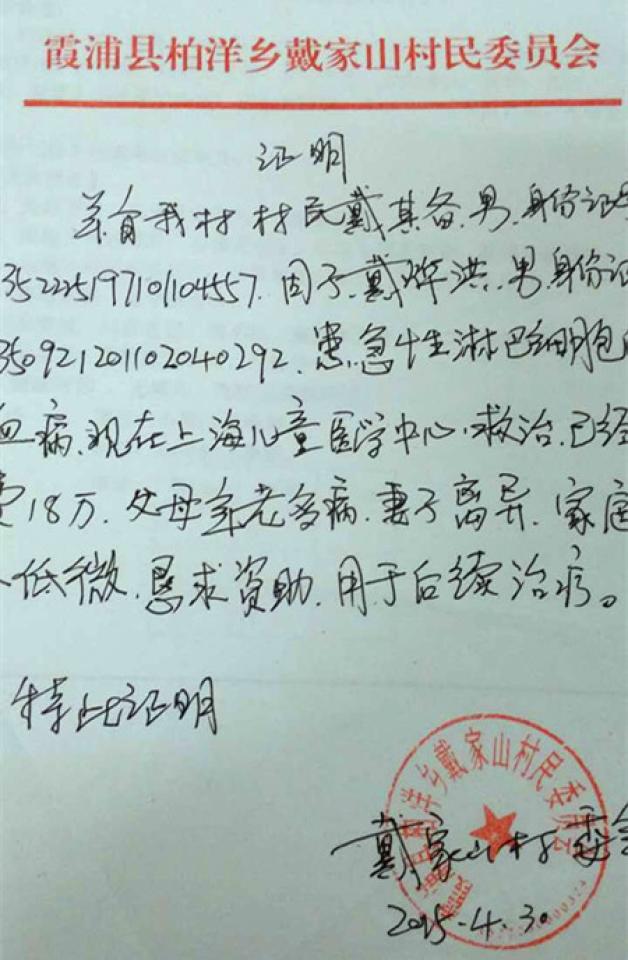 霞浦县柏洋乡戴家山村民委员会
证明
兹有我村村民戴其备.男.身份证号
352225197101104557.因子.戴烨洪.男.身份证
350921201102040292.患急性淋巴细胞
血病.现在上海儿童医学中心.救治.已经
费18万.父母年老多病.妻子离异.家庭
入低微.恳求资助.用于后续治疗。
特此证明
戴家山村委会
2015.4.30